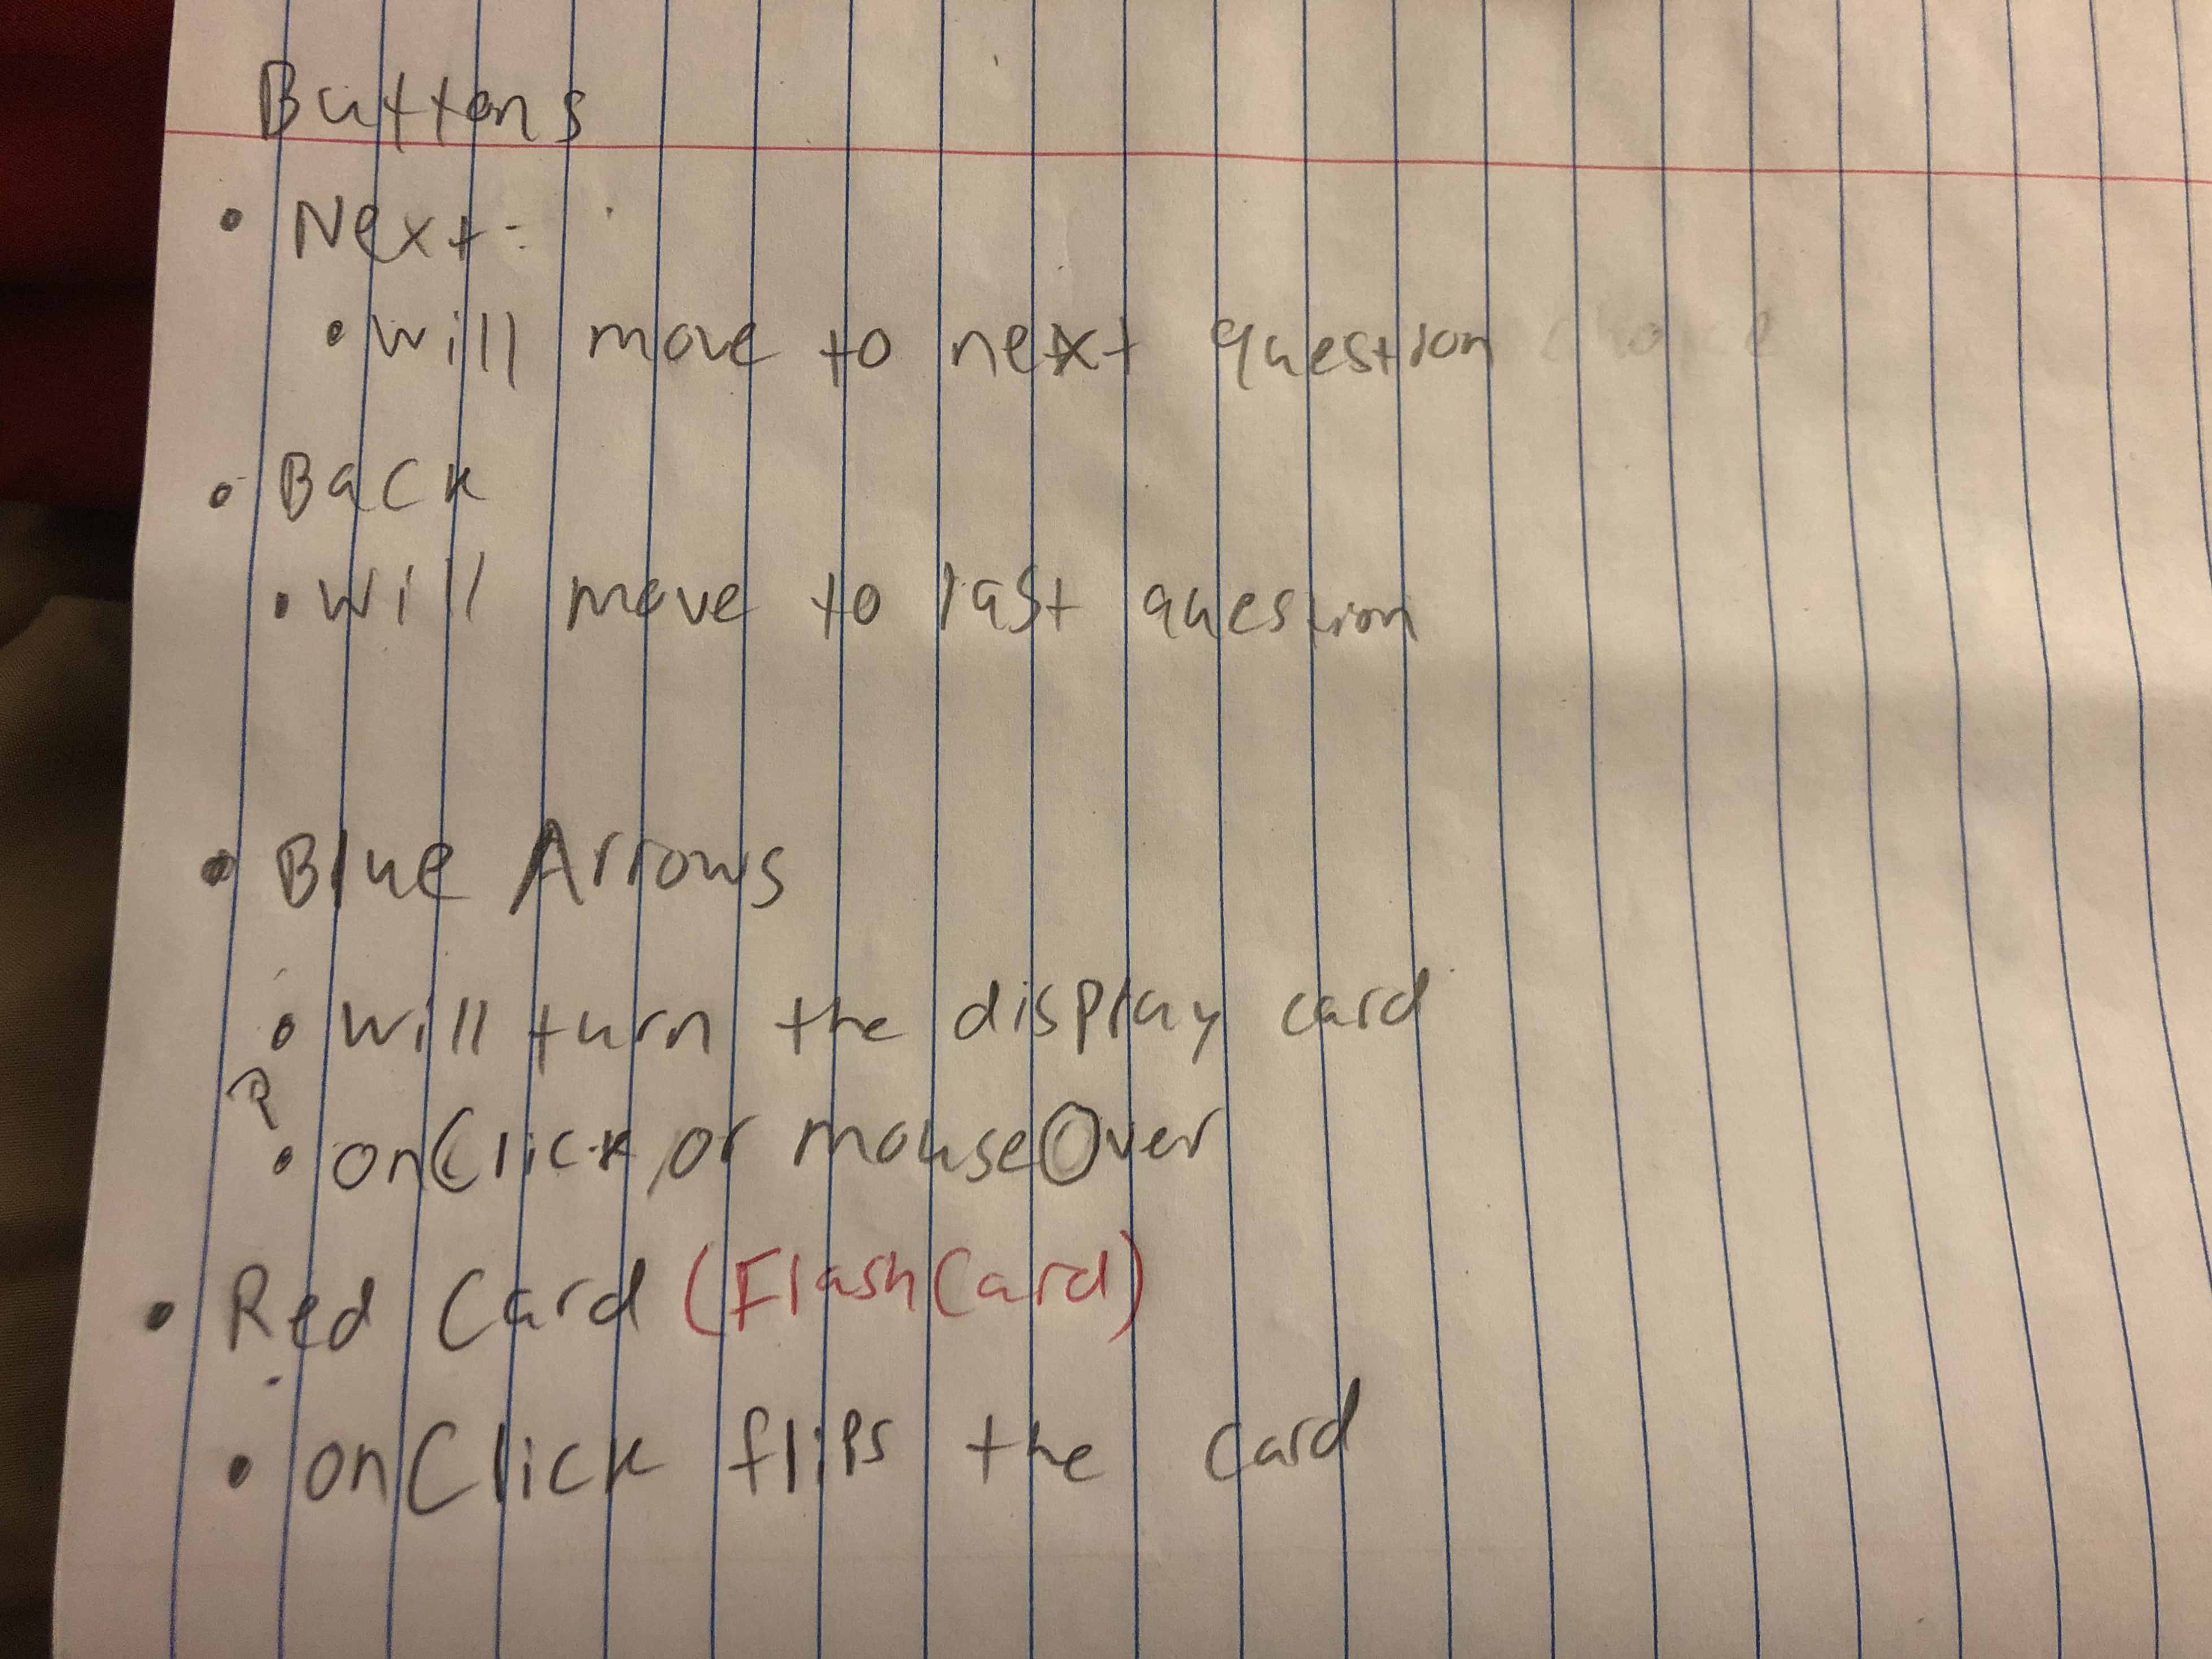 Buttons
• Next:
• will move to next question
• Back
• will move to last question
• Blue Arrows
• will turn the display card
?
• onClick or mouseOver
• Red Card (FlashCard)
• onClick flips the card